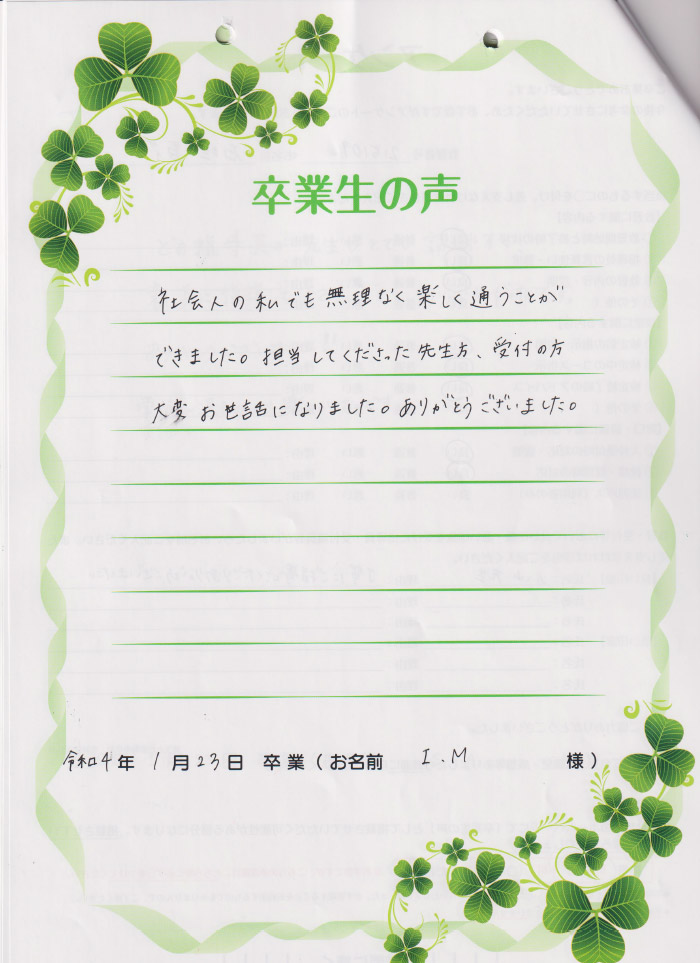 卒業生の声
社会人の私でも無理なく楽しく通うことが
できました。担当してくださった先生方、受付の方
大変お世話になりました。ありがとうございました。
令和4年 1月23日 卒業(お名前 I.M 様)